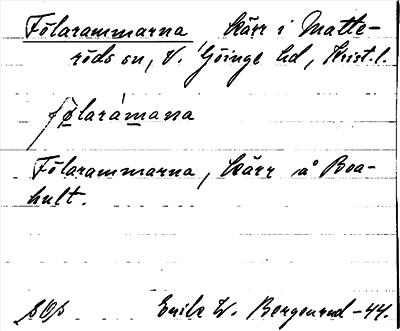 Fölarammarna, kärr i Matte-
röds sn, V. Göinge hd, Krist. l.
følarámana
Fölarammarna, kärr å Boa-
hult.
SOp Erik W. Bergenrud -44.